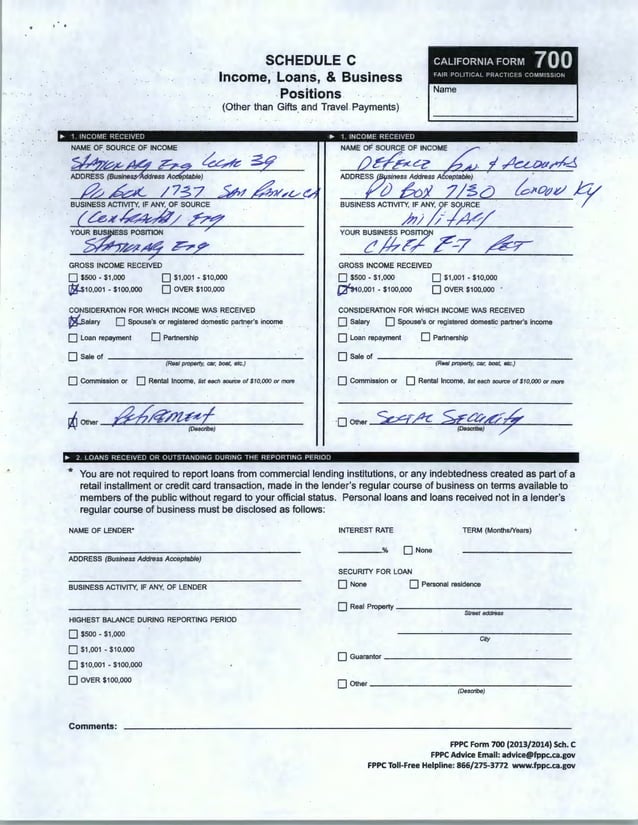 SCHEDULE C
Income, Loans, & Business
Positions
(Other than Gifts and Travel Payments)
CALIFORNIA FORM 700
FAIR POLITICAL PRACTICES COMMISSION
Name
► 1. INCOME RECEIVED
NAME OF SOURCE OF INCOME
Stationary Eng Local 39
ADDRESS (Business Address Acceptable)
PO Box 1737 San CA
BUSINESS ACTIVITY, IF ANY, OF SOURCE
Eng
YOUR BUSINESS POSITION
Stationary Eng
GROSS INCOME RECEIVED
$500 - $1,000 $1,001 - $10,000
$10,001 - $100,000 OVER $100,000
CONSIDERATION FOR WHICH INCOME WAS RECEIVED
Salary Spouse's or registered domestic partner's income
Loan repayment Partnership
Sale of
(Real property, car, boat, etc.)
Commission or Rental Income, list each source of $10,000 or more
Other Retirement
(Describe)
► 1. INCOME RECEIVED
NAME OF SOURCE OF INCOME
Defence & Accounts
ADDRESS (Business Address Acceptable)
PO Box 7130 London Ky
BUSINESS ACTIVITY, IF ANY, OF SOURCE
military
YOUR BUSINESS POSITION
Chief E-7 Ret
GROSS INCOME RECEIVED
$500 - $1,000 $1,001 - $10,000
$10,001 - $100,000 OVER $100,000
CONSIDERATION FOR WHICH INCOME WAS RECEIVED
Salary Spouse's or registered domestic partner's income
Loan repayment Partnership
Sale of
(Real property, car, boat, etc.)
Commission or Rental Income, list each source of $10,000 or more
Other Social Security
(Describe)
► 2. LOANS RECEIVED OR OUTSTANDING DURING THE REPORTING PERIOD
* You are not required to report loans from commercial lending institutions, or any indebtedness created as part of a
retail installment or credit card transaction, made in the lender's regular course of business on terms available to
members of the public without regard to your official status. Personal loans and loans received not in a lender's
regular course of business must be disclosed as follows:
NAME OF LENDER*
ADDRESS (Business Address Acceptable)
BUSINESS ACTIVITY, IF ANY, OF LENDER
HIGHEST BALANCE DURING REPORTING PERIOD
$500 - $1,000
$1,001 - $10,000
$10,001 - $100,000
OVER $100,000
INTEREST RATE TERM (Months/Years)
% None
SECURITY FOR LOAN
None Personal residence
Real Property
Street address
City
Guarantor
Other
(Describe)
Comments:
FPPC Form 700 (2013/2014) Sch. C
FPPC Advice Email: advice@fppc.ca.gov
FPPC Toll-Free Helpline: 866/275-3772 www.fppc.ca.gov